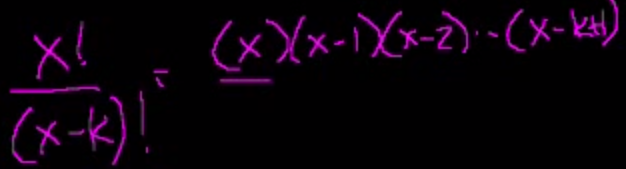 x! / (x-k)! = (x)(x-1)(x-2)...(x-k+1)